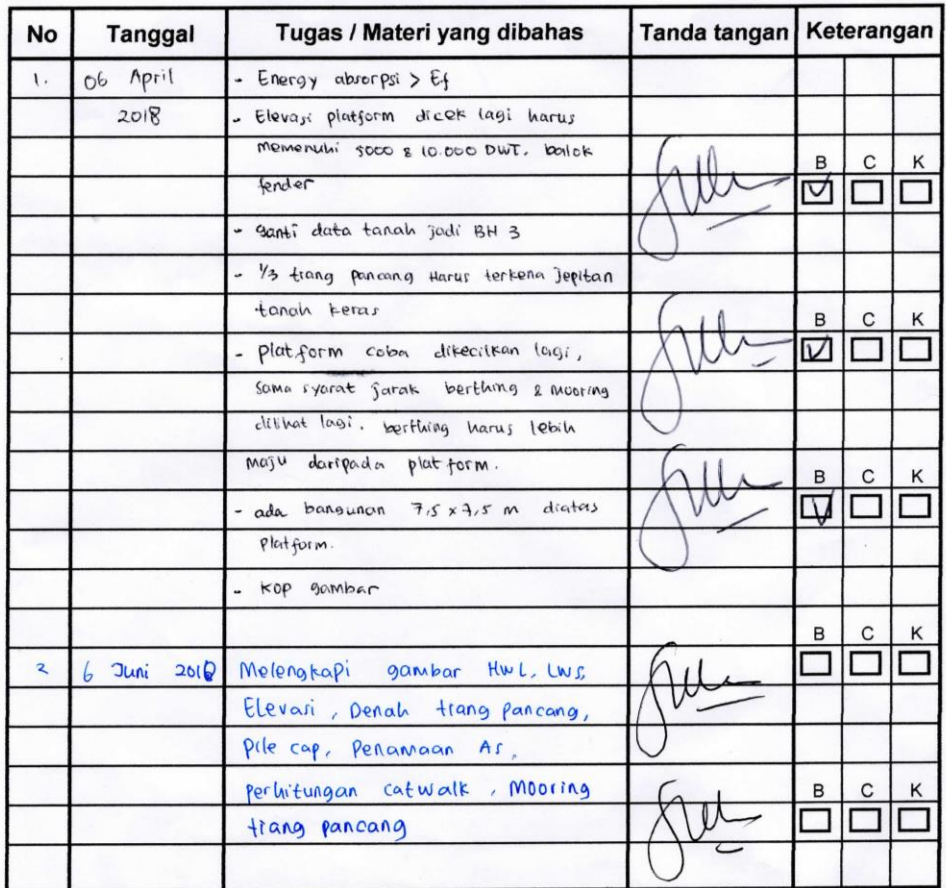 No Tanggal Tugas / Materi yang dibahas Tanda tangan Keterangan
1. 06 April - Energy absorpsi > Ef
2018 - Elevasi platform dicek lagi harus
memenuhi 5000 & 10.000 DWT. balok
B C K
fender
- Ganti data tanah jadi BH 3
- 1/3 tiang pancang Harus terkena Jepitan
tanah keras
B C K
- platform coba dikecilkan lagi,
sama syarat jarak berthing & mooring
dilihat lagi. berthing harus lebih
maju daripada platform.
B C K
- ada bangunan 7,5 x 7,5 m diatas
Platform.
- KOP gambar
B C K
2 6 Juni 2018 Melengkapi gambar HWL, LWS,
Elevasi, Denah tiang pancang,
Pile cap, Penamaan As,
perhitungan catwalk, Mooring
B C K
tiang pancang